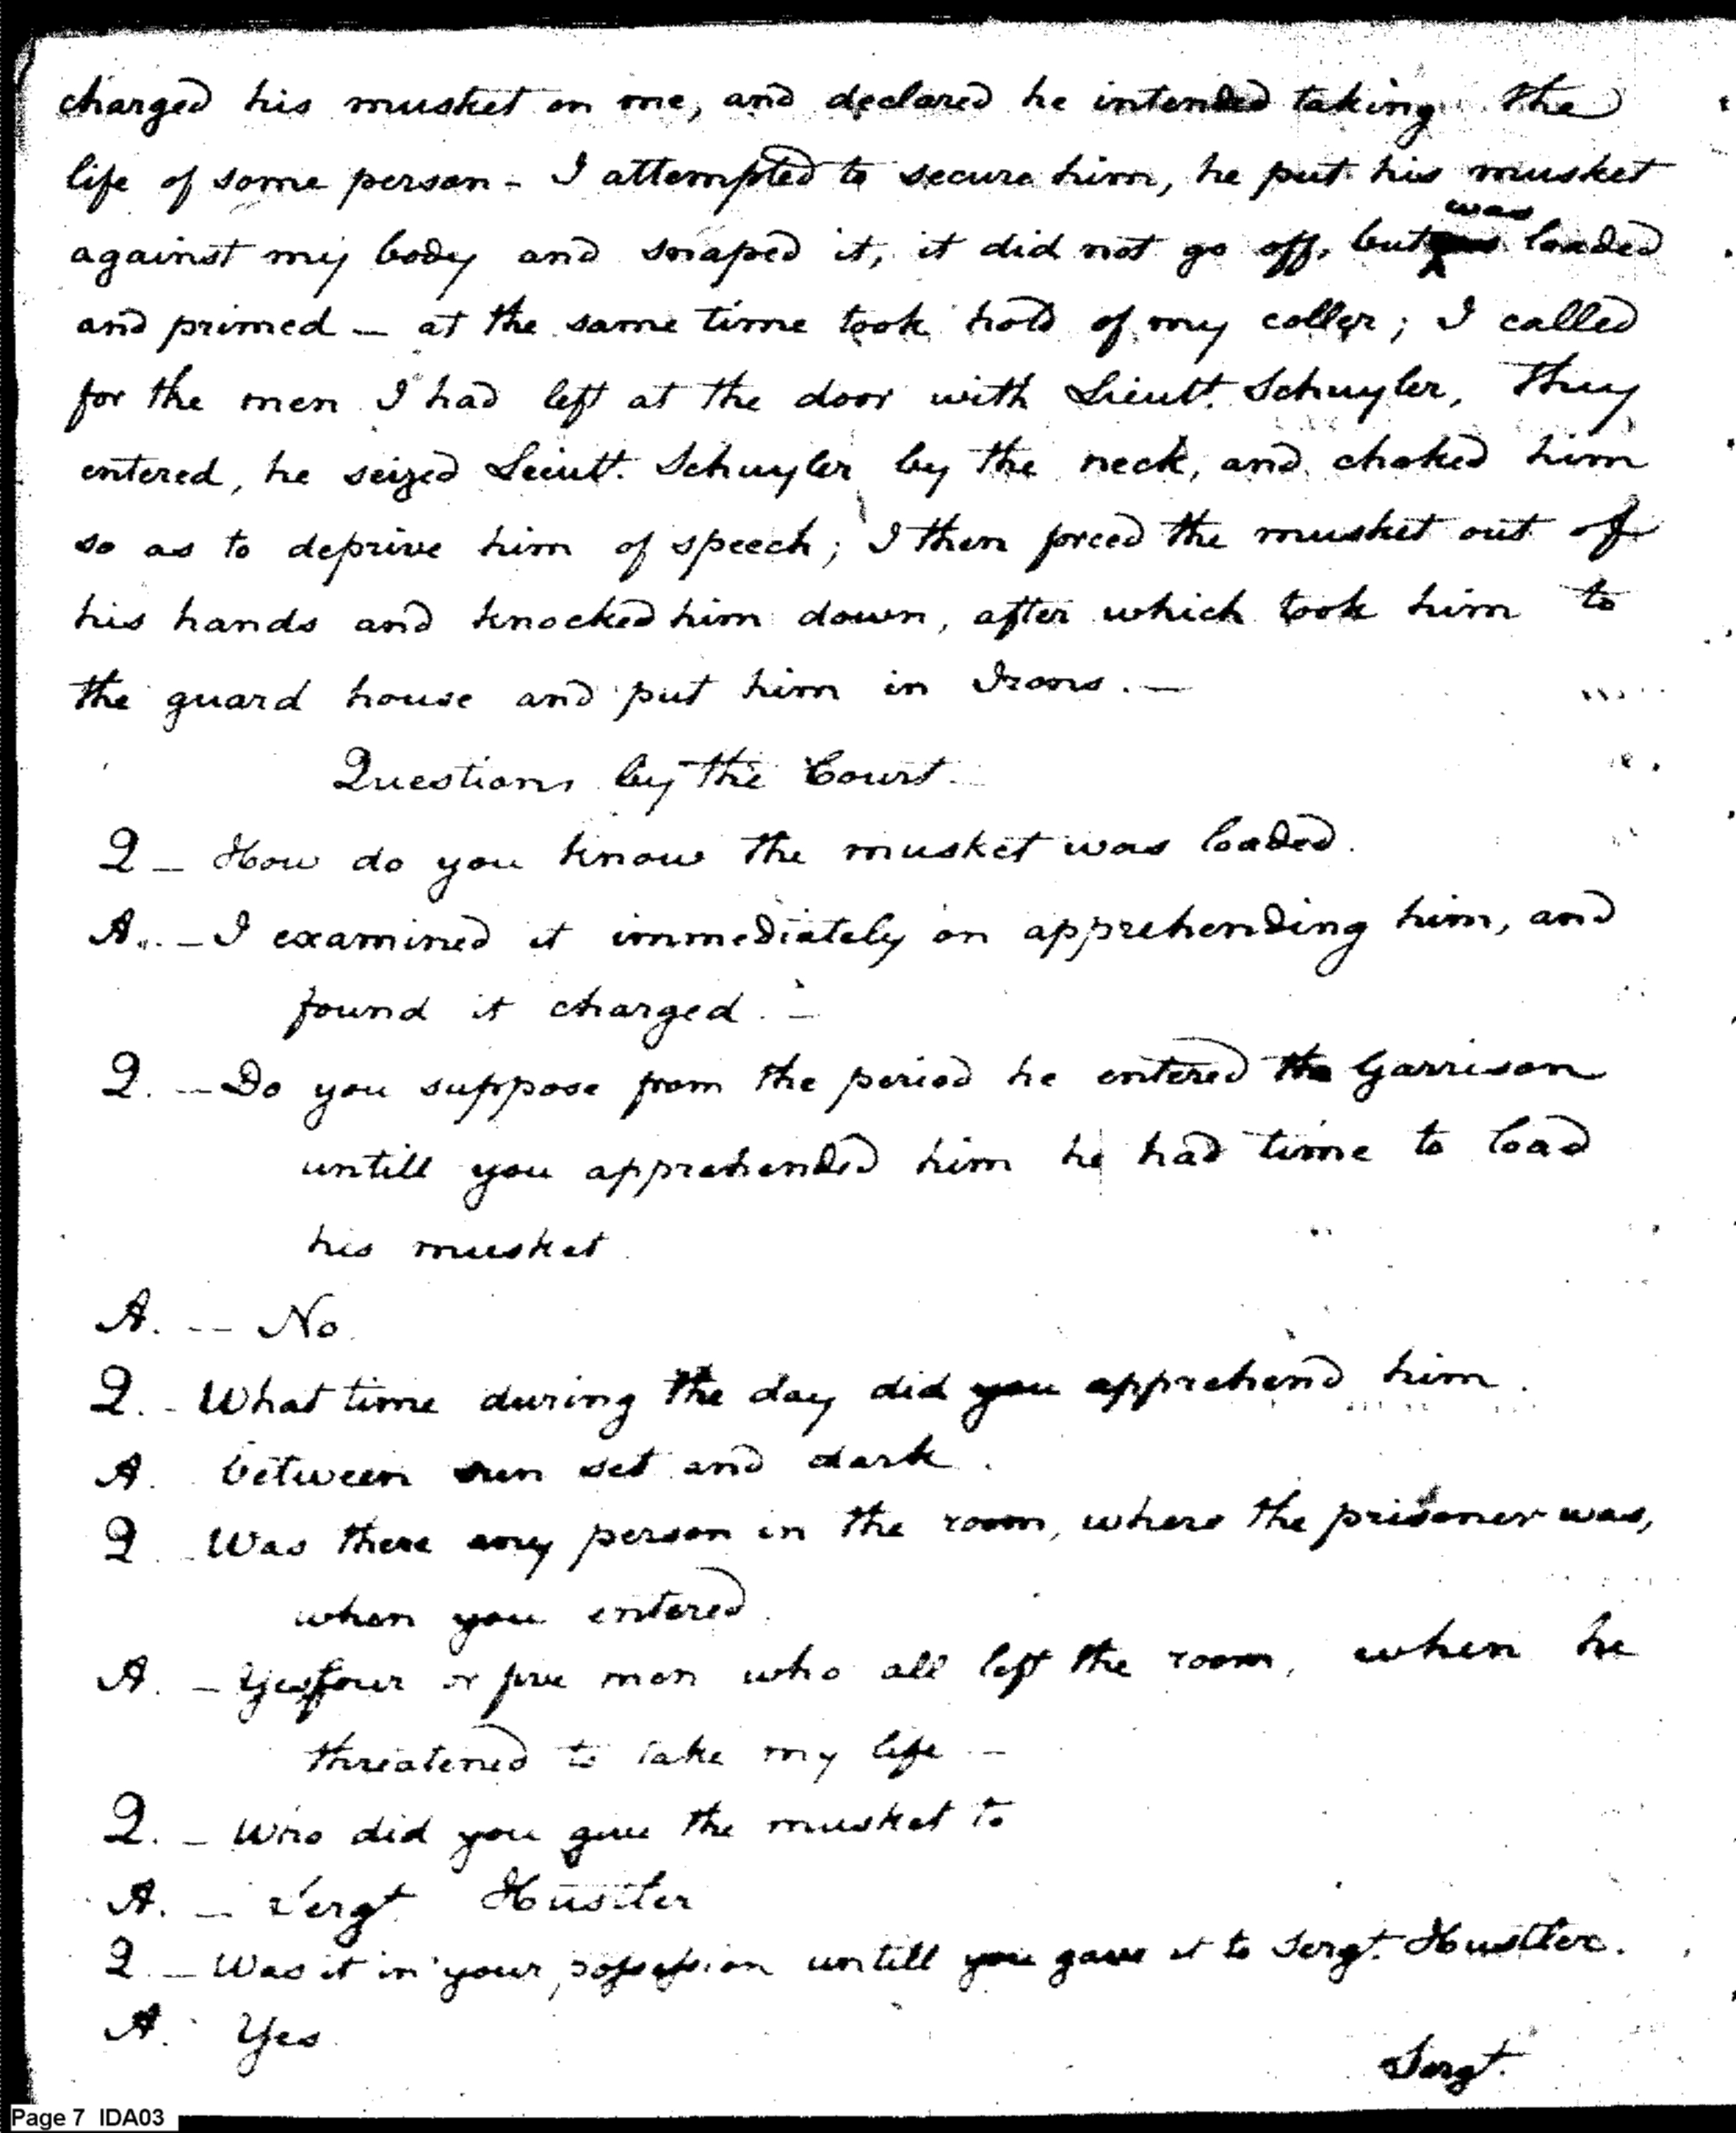 charged his musket on me, and declared he intended taking the
life of some person - I attempted to secure him, he put his musket
was
against my body and snaped it, it did not go off, but loaded
and primed - at the same time took hold of my coller; I called
for the men I had left at the door with Lieutt. Schuyler, they
entered, he seized Lieutt. Schuyler by the neck, and choked him
so as to deprive him of speech; I then forced the musket out of
his hands and knocked him down, after which took him to
the guard house and put him in Irons. -
Questions by the Court -
Q - How do you know the musket was loaded.
A. - I examined it immediately on apprehending him, and
found it charged. -
Q. - Do you suppose from the period he entered the Garrison
untill you apprehended him he had time to load
his musket
A. - - No.
Q. - What time during the day did you apprehend him.
A. between sun set and dark.
Q - Was there any person in the room, where the prisoner was,
when you entered.
A. - Yes four or five men who all left the room, when he
threatened to take my life -
Q. - Who did you give the musket to
A. - Sergt Hustler
Q. - Was it in your possession untill you gave it to Sergt. Hustler.
A. Yes.
Sergt.
Page 7 IDA03